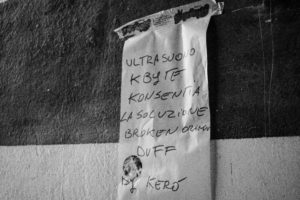 ULTRASUONO
KBYTE
KONSENTIA
LA SOLUZIONE
BROKEN
DUFF
DJ KERÓ